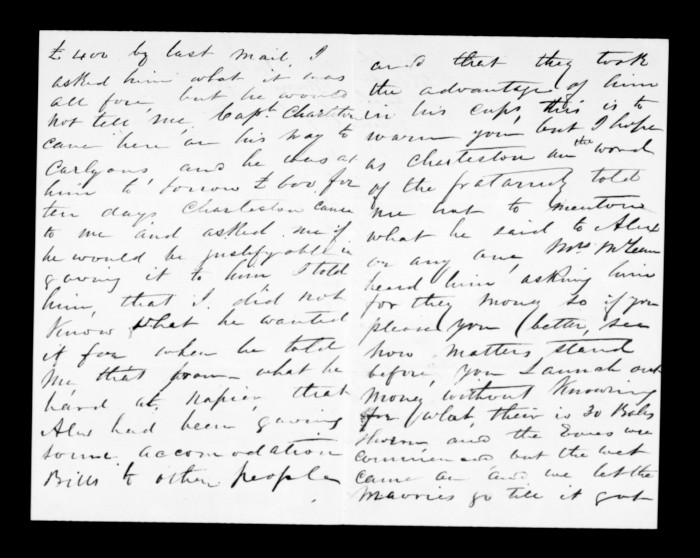 £400 by last mail. I
asked him what it was
all fore, but he would
not tell me, Capt. Charleston
came here on his way to
Carlyons and he was at
him to borrow £600 for
ten days Charleston came
to me and asked me if
he would be justifyable in
gaving it to him I told
him, that I did not
Know what he wanted
it for when he told
me, that from what he
hard at Napier, that
Alex had been gaving
some accomodation
Bills to other people
and that they took
the advantage of him
in his cups, this is to
warn you but I hope
as Charleston on the word
of the fraternity told
me not to mentione
what he said to Alex
or any one, Mrs McLean
heard him asking him
for they money so if you
please you (better, see
how matters stand
before, you Launch out
money without Knowing
for (what, their is 30 Bales
shorn and the Ewes we
commenced but the wet
came on and we let the
Maories go till it got